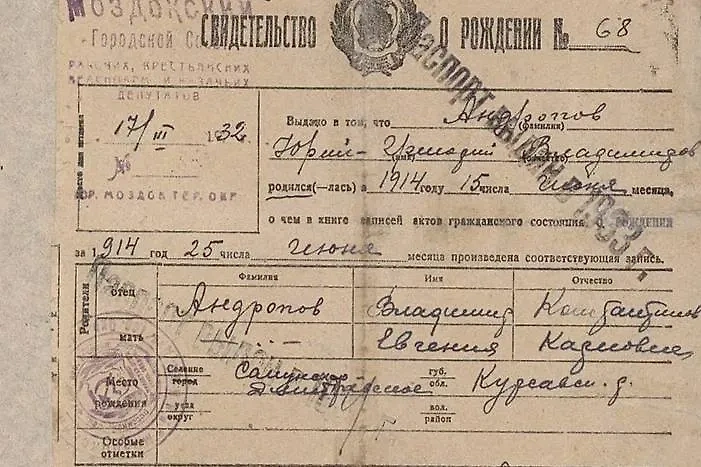 МОЗДОКСКИЙ
Городской Со
РАБОЧИХ, КРЕСТЬЯНСКИХ
КРАСНОАРМ И КАЗАЧЬИХ
ДЕПУТАТОВ
СВИДЕТЕЛЬСТВО О РОЖДЕНИИ № 68
17/III 1932
№
ГОР. МОЗДОК ТЕР. ОКР.
Выдано в том, что Андропов
(фамилия)
Юрий- Григорий Владимиров
(имя) (отчество)
родился(—лась) в 1914 году 15 числа Июня месяца,
о чем в книге записей актов гражданского состояния о рождении
за 1914 год 25 числа Июня месяца произведена соответствующая запись.
Паспорт выдан в 1933 г.
Родители Фамилия Имя Отчество
отец Андропов Владимир Константинов
мать — Евгения Карловна
Место рождения
Селение город губ. обл. Курсавск. р.
уезд округ вол. район
Особые отметки